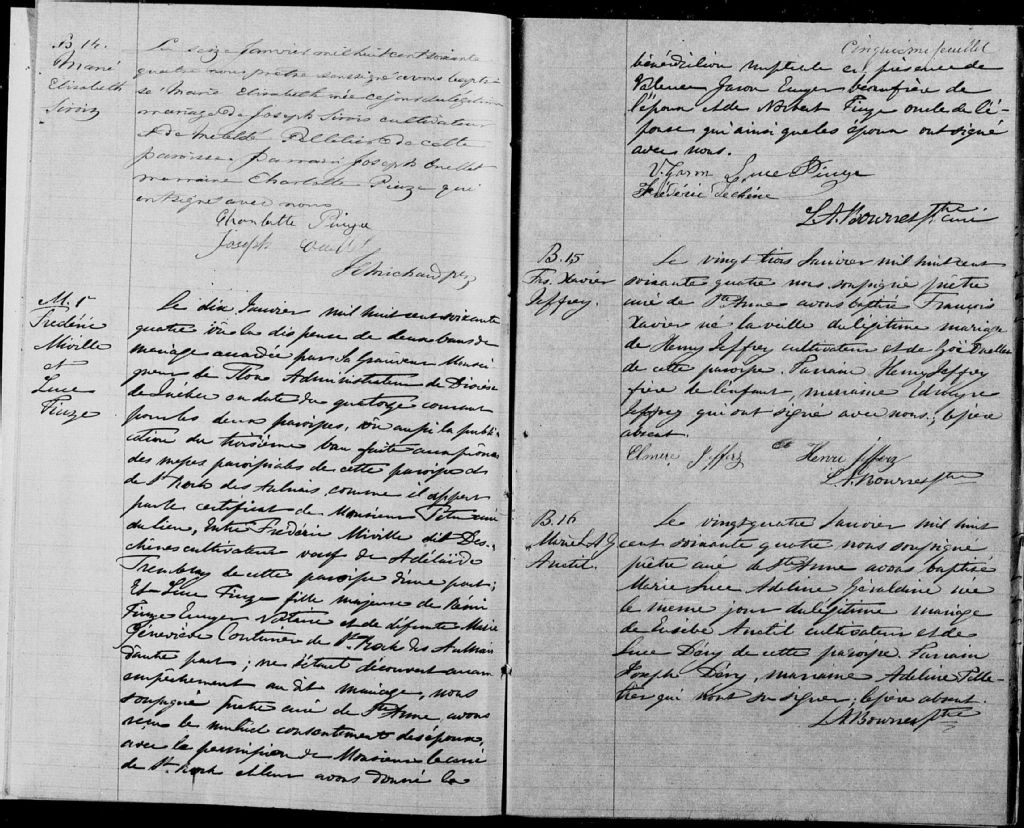 B 14.
Marie
Elisabeth
Sirois
Le seize Janvier mil huit cent soixante
quatre nous prêtre soussigné avons bapti-
sé Marie Elisabeth née ce jour du légitime
mariage de Joseph Sirois cultivateur
et de Pelletier de cette
paroisse. Parrain Joseph Ouellet
marraine Charlotte Piuze qui
ont signé avec nous
Charlotte Piuze
Joseph Ouellet
M. 1r
Frédéric
Miville
et
Luce
Piuze
Le dix Janvier mil huit cent soixante
quatre vû la dispense de deux bans de
mariage accordée par Sa Grandeur Monsei
gneur de Tloa Administrateur du Diocèse
de Québec en date du quatorze courant
pour les deux paroisses, vû aussi la publi-
cation du troisième ban faite au prône
des messes paroissiales de cette paroisse et
de St Roch des Aulnais comme il appert
par le certificat de Monsieur curé
du lieu, Entre Frédéric Miville dit Des-
chênes cultivateur veuf de Adélaïde
Tremblay de cette paroisse d'une part;
Et Luce Piuze fille majeure de Rémi
Piuze Ecuyer Notaire et de défunte Marie
Geneviève Couturier de St Roch des Aulnais
d'autre part; ne s'étant découvert aucun
empêchement au dit mariage, nous
soussigné prêtre curé de Ste Anne, avons
reçu le mutuel consentement des époux,
avec la permission de Monsieur le curé
de St Roch et leur avons donné la
Cinquième feuillet
bénédiction nuptiale en présence de
Valence Garon Ecuyer beaufrère de
l'époux et de Norbert Piuze oncle de l'é-
pouse qui ainsi que les époux ont signé
avec nous.
V. Garon Luce Piuze
Frédéric Dechêne
L.A. Bourret Ptre curé
B. 15
Frs. Xavier
Jeffrey.
Le vingt trois Janvier mil huit cent
soixante quatre nous soussigné prêtre
curé de Ste Anne avons baptisé François
Xavier né la veille du légitime mariage
de Henry Jeffrey cultivateur et de Zoë Ouellet
de cette paroisse. Parrain Henry Jeffrey
frère de l'enfant, marraine
Jeffrey qui ont signé avec nous; le père
absent.
Elmere Jeffery Henri Jeffery
L.A. Bourret Ptre
B. 16
Marie L. A. G.
Anctil.
Le vingt quatre Janvier mil huit
cent soixante quatre nous soussigné
prêtre curé de Ste Anne avons baptisé
Marie Luce Adeline Géraldine née
le même jour du légitime mariage
de Eusèbe Anctil cultivateur et de
Luce Dery de cette paroisse. Parrain
Joseph Dery, marraine Adeline Pelle-
tier qui n'ont su signer, le père absent.
L.A. Bourret Ptre